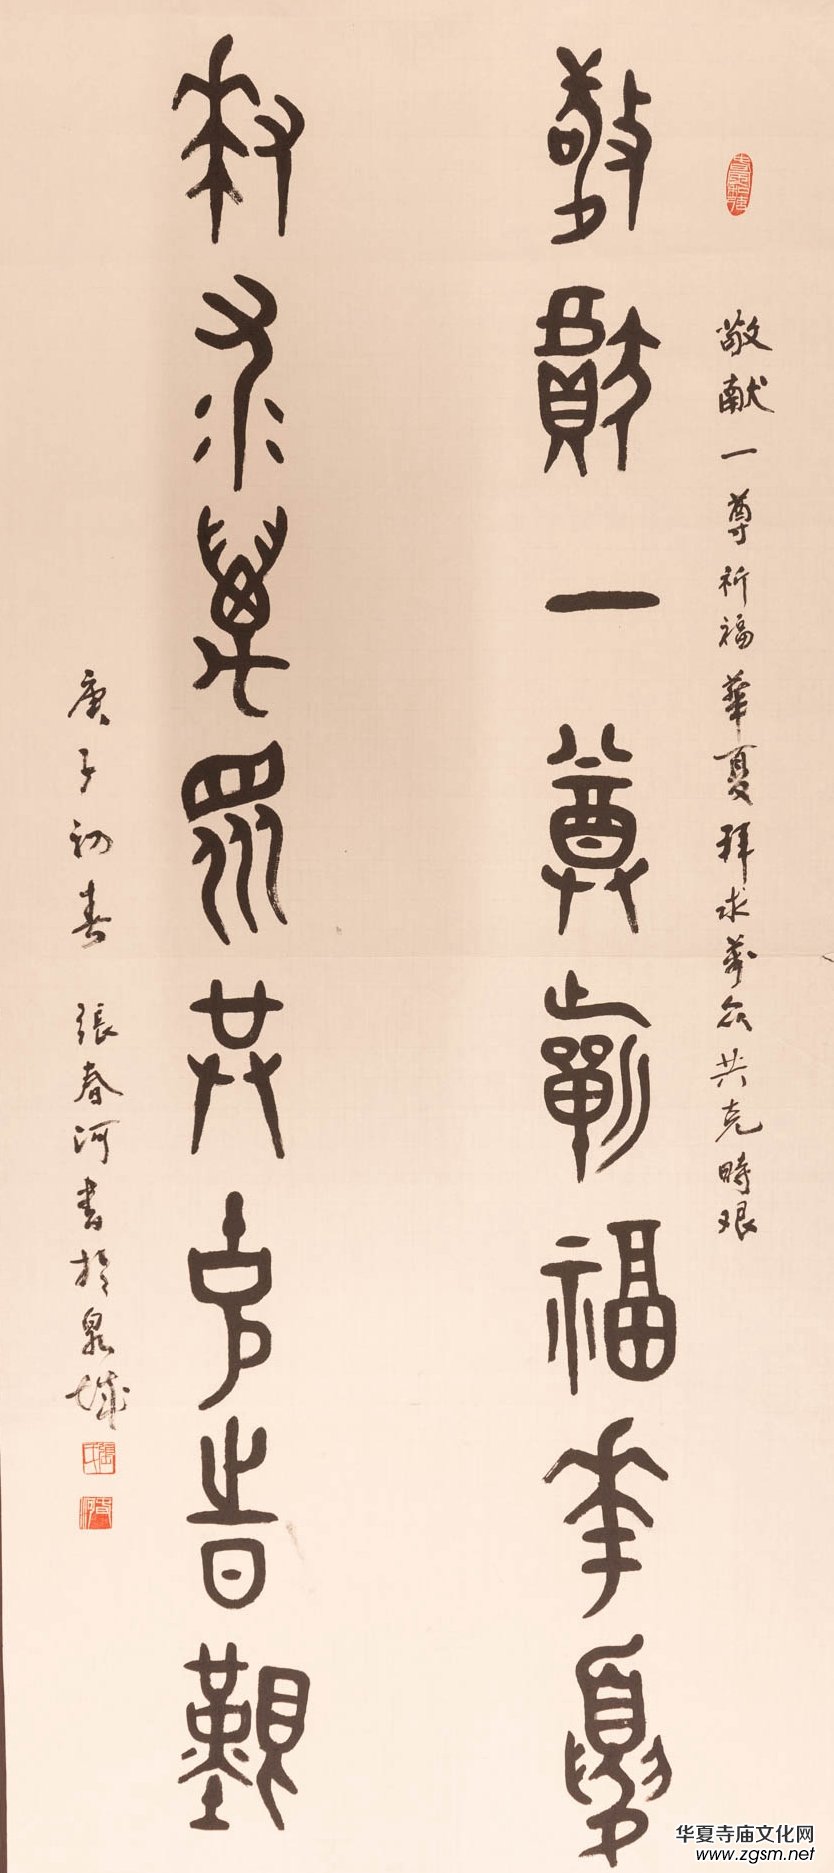 敬献一尊祈福華夏拜求萬众共克時艰
敬獻一尊祈福華夏
拜求萬眾共克時艱
庚子初春 張春河書於泉城
張
春河
华夏寺庙文化网
www.zgsm.net